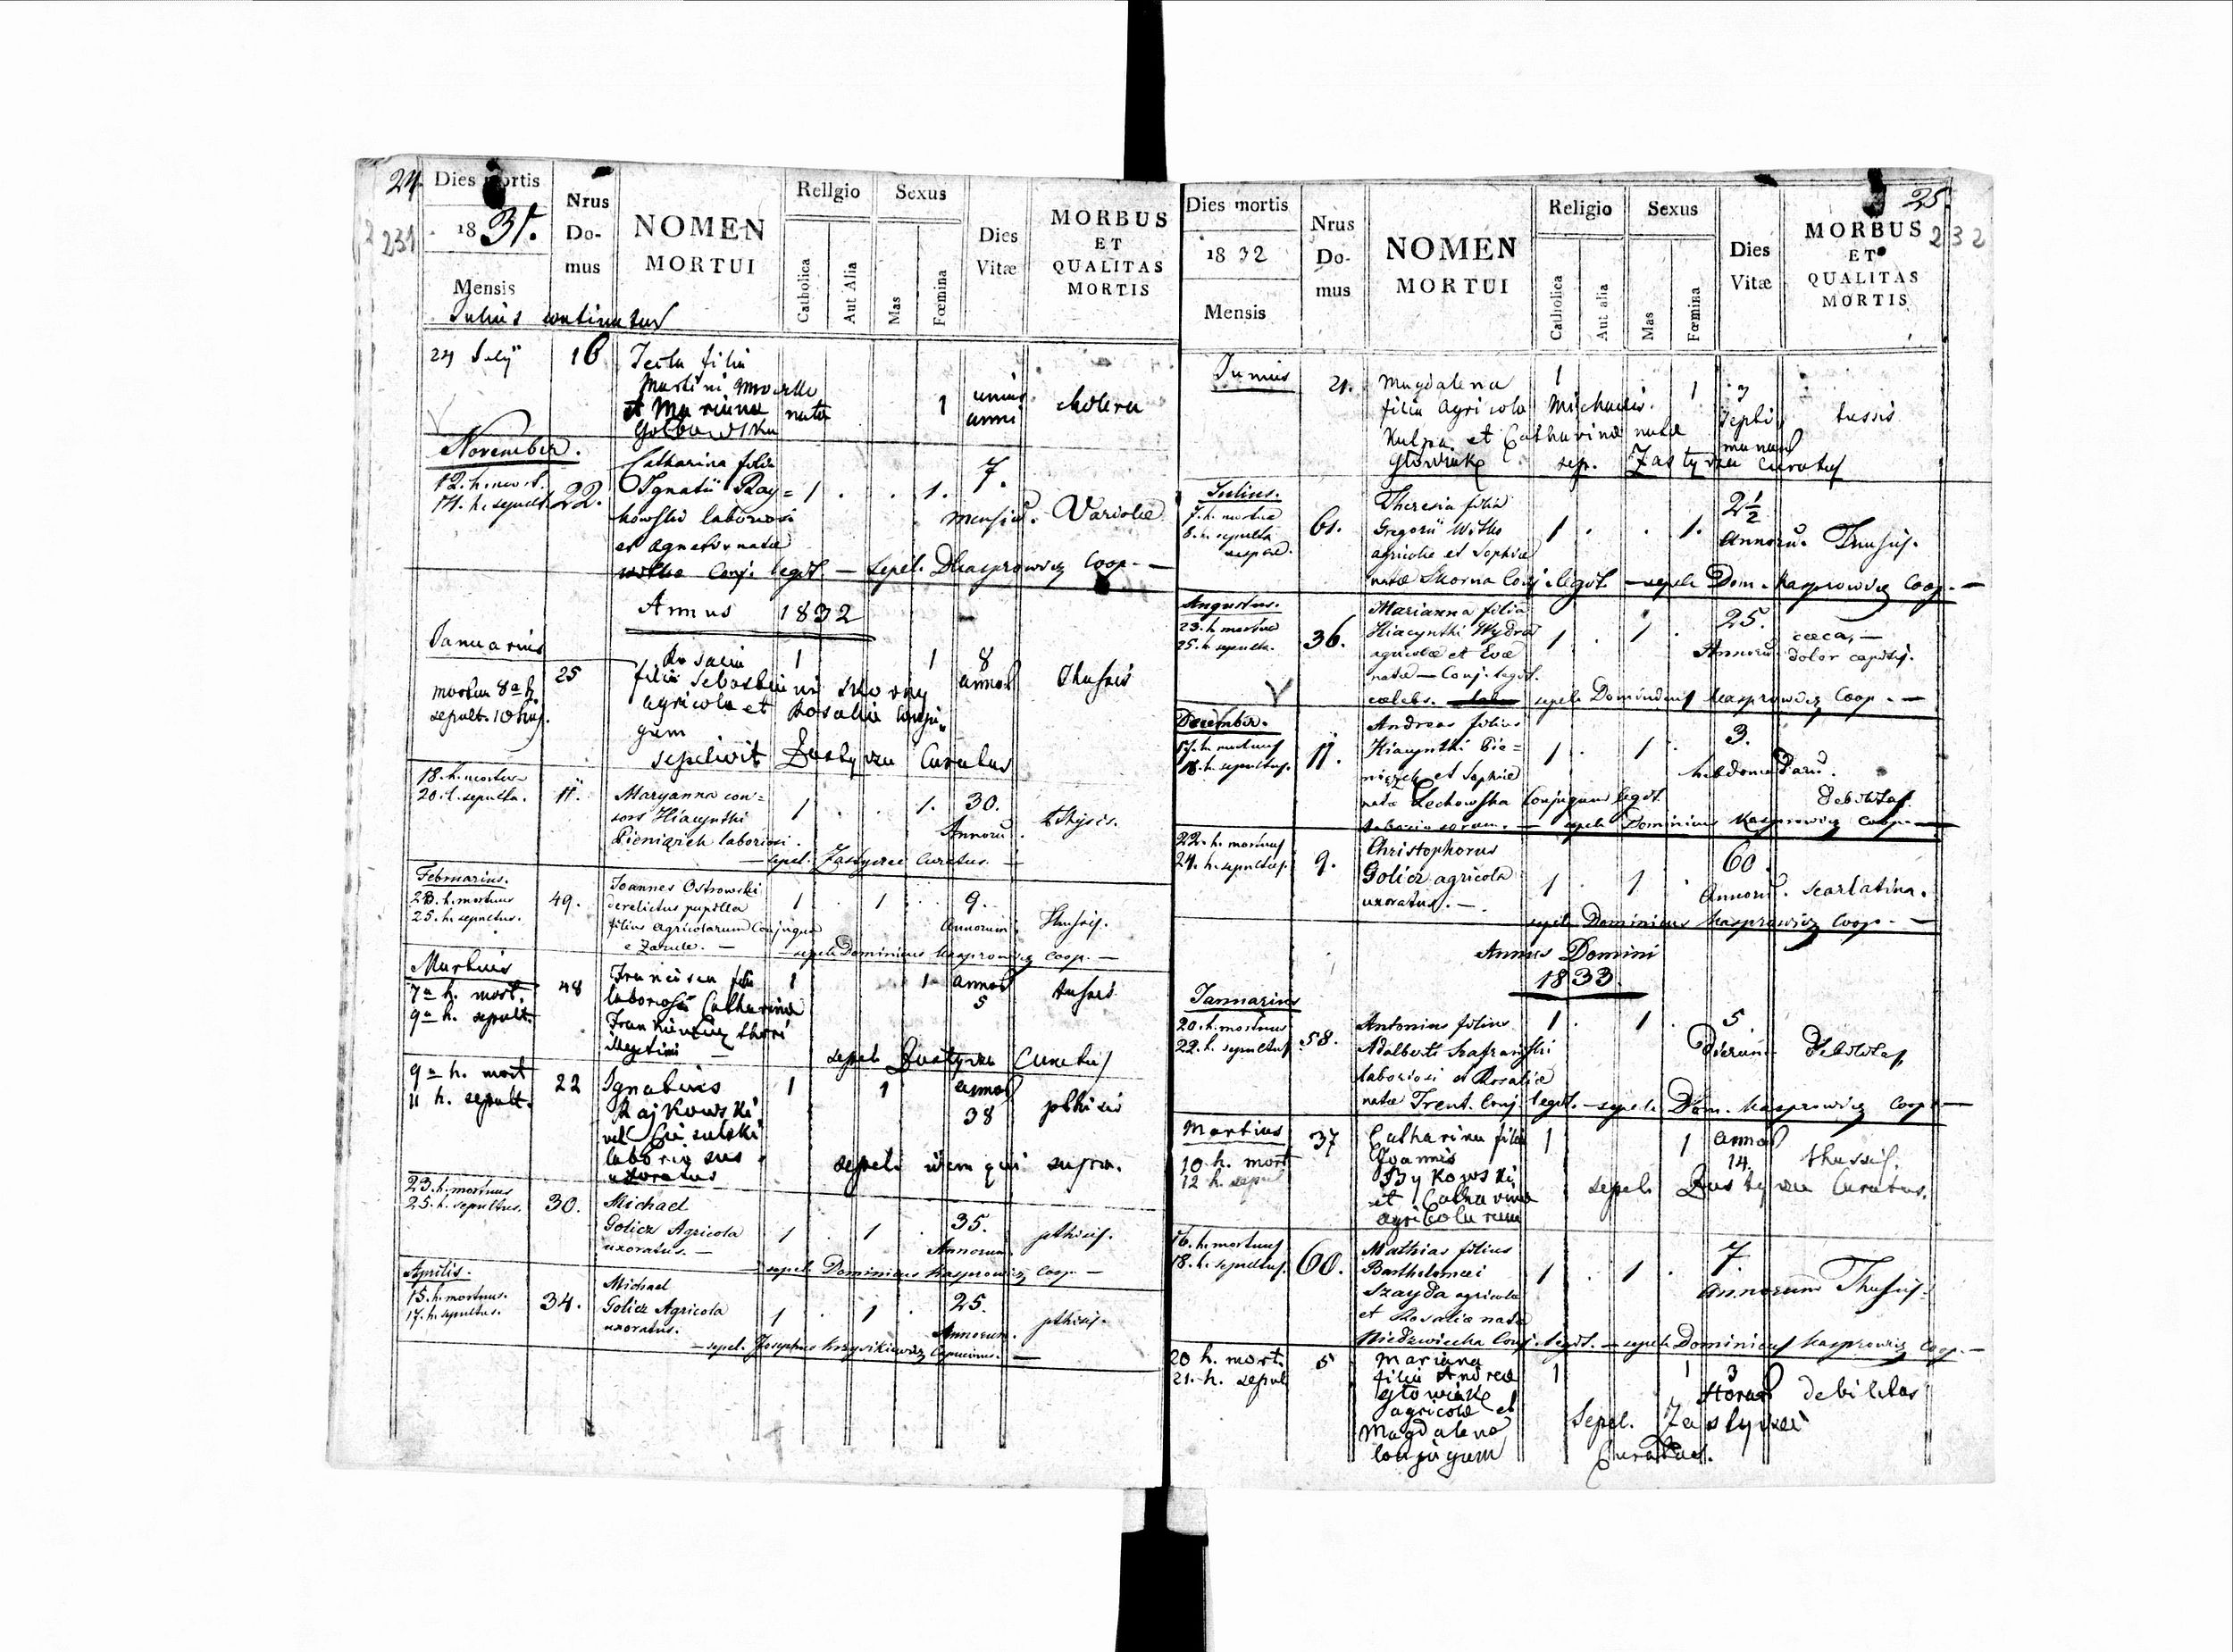 24.
231
Dies mortis
1831.
Mensis
Nrus
Do-
mus
NOMEN
MORTUI
Religio
Catholica
Aut Alia
Sexus
Mas
Fœmina
Dies
Vitæ
MORBUS
ET
QUALITAS
MORTIS
Julius continuatur
24 July 16 Tecla filia
Martini
et Marianna nata 1 unius
anni cholera
November.
12. h. mort.
14. h. sepult. 22.
Catharina filia
Ignatii Ray=
kowski laboriosi
et Agnetis natæ
Conj. legit. — sepel. D Kasprowicz Coop. —
1 . . 1. 7.
mensiū. Variolæ
Annus 1832
Januarius
mortua 8a h.
sepult. 10 huj. 25
Rosalia 1 1 8
filia Sebastiani Skorny annos Thussis
agricola et Rosalia conju
gum
sepelivit Zastyrzec Curatus
18. h. mortua
20. h. sepulta. 11.
Maryanna con=
sors Hiacynthi
Pieniązek laboriosi.
1 . . 1. 30.
Annorū. Pthysis.
— sepel. Zastyrzec Curatus. —
Februarius.
23. h. mortuus
25. h. sepultus. 49.
Joannes Ostrowski
derelictus pupilla
filius agricolarum Conjugum
e Zarule. —
1 . 1 . 9.
Annorum. Thussis.
— sepel. Dominicus Kasprowicz Coop. —
Martius
7a h. mort.
9a h. sepult. 48
Francisca filia
laboriosæ Catharina
thori
illegitimi —
1 1 annos
5 tussis
sepel. Zastyrzec Curatus
9a h. mort
11 h. sepult. 22
Ignatius
Rajkowski
vel
laboriosus
uxoratus
1 1 annos
38 pthisis
sepeli. idem qui supra.
23. h. mortuus
25. h. sepultus. 30.
Michael
Golicz Agricola
uxoratus. —
1 . 1 . 35.
Annorum. pthisis.
— sepel. Dominicus Kasprowicz Coop. —
Aprilis.
15. h. mortuus.
17. h. sepultus. 34.
Michael
Golicz Agricola
uxoratus.
1 . 1 . 25.
Annorum. pthisis.
— sepel. Josephus Capucinus. —
25.
232
Dies mortis
1832
Mensis
Nrus
Do-
mus
NOMEN
MORTUI
Religio
Catholica
Aut alia
Sexus
Mas
Fœmina
Dies
Vitæ
MORBUS
ET
QUALITAS
MORTIS
Junius 21.
Magdalena 1 1 3
filia agricola Michaelis. septi
manas tussis
Kulpa et Catharina nata
Głowinke sep. Zastyrzec Curatus
Julius.
7. h. mortua
8. h. sepulta 61.
Theresia filia
Gregorii Witko
agricolæ et Sophiæ
natæ Skorna Conj. legit. — sepel. Dom. Kasprowicz Coop. —
1 . . 1. 2½
annorū. Thussis.
Augustus.
23. h. mortua
25. h. sepulta. 36.
Marianna filia
Hiacynthi Wydra
agricolæ et Evæ
natæ — Conj. legit.
cælebs. sepel. Dominicus Kasprowicz Coop. —
1 . 1 . 25.
Annorū. cæca, —
dolor capitis.
December.
17. h. mortuus
18. h. sepultus. 11.
Andreas filius
Hiacynthi Pie=
niązek et Sophiæ
natæ Lechowska Conjugum legit.
laboriosorum. — sepel. Dominicus Kasprowicz Coop. —
1 . 1 . 3.
hebdomadarū.
debilitas.
22. h. mortuus
24. h. sepultus. 9.
Christophorus
Golicz agricola
uxoratus. —
1 . 1 . 60.
Annorū. scarlatina.
sepel. Dominicus Kasprowicz Coop. —
Annus Domini
1833.
Januarius
20. h. mortuus
22. h. sepultus 58.
Antonius filius
Adalberti Szafrański
laboriosi et Rosaliæ
natæ Trent. Conj. legit. — sepel. Dom. Kasprowicz Coop. —
1 . 1 . 5
dierum debilitas
Martius
10. h. mort
12 h. sepul 37
Catharina filia
Joannis
Bykowski
et Catharina
agricolarum
1 1 annos
14. thussis.
sepel. Zastyrzec Curatus.
16. h. mortuus
18. h. sepultus. 60.
Mathias filius
Bartholomæi
Szayda agricola
et Rosaliæ nata
Niedzwiecka Conj. legit. — sepel. Dominicus Kasprowicz Coop. —
1 . 1 . 7.
annorum Thussis.
20 h. mort.
21. h. sepul 5
Mariana
filia Andreæ
Głowinke
agricolæ et
Magdalena
conjugum
1 1 3
horas debilitas
Sepel. Zastyrzec
Curatus.